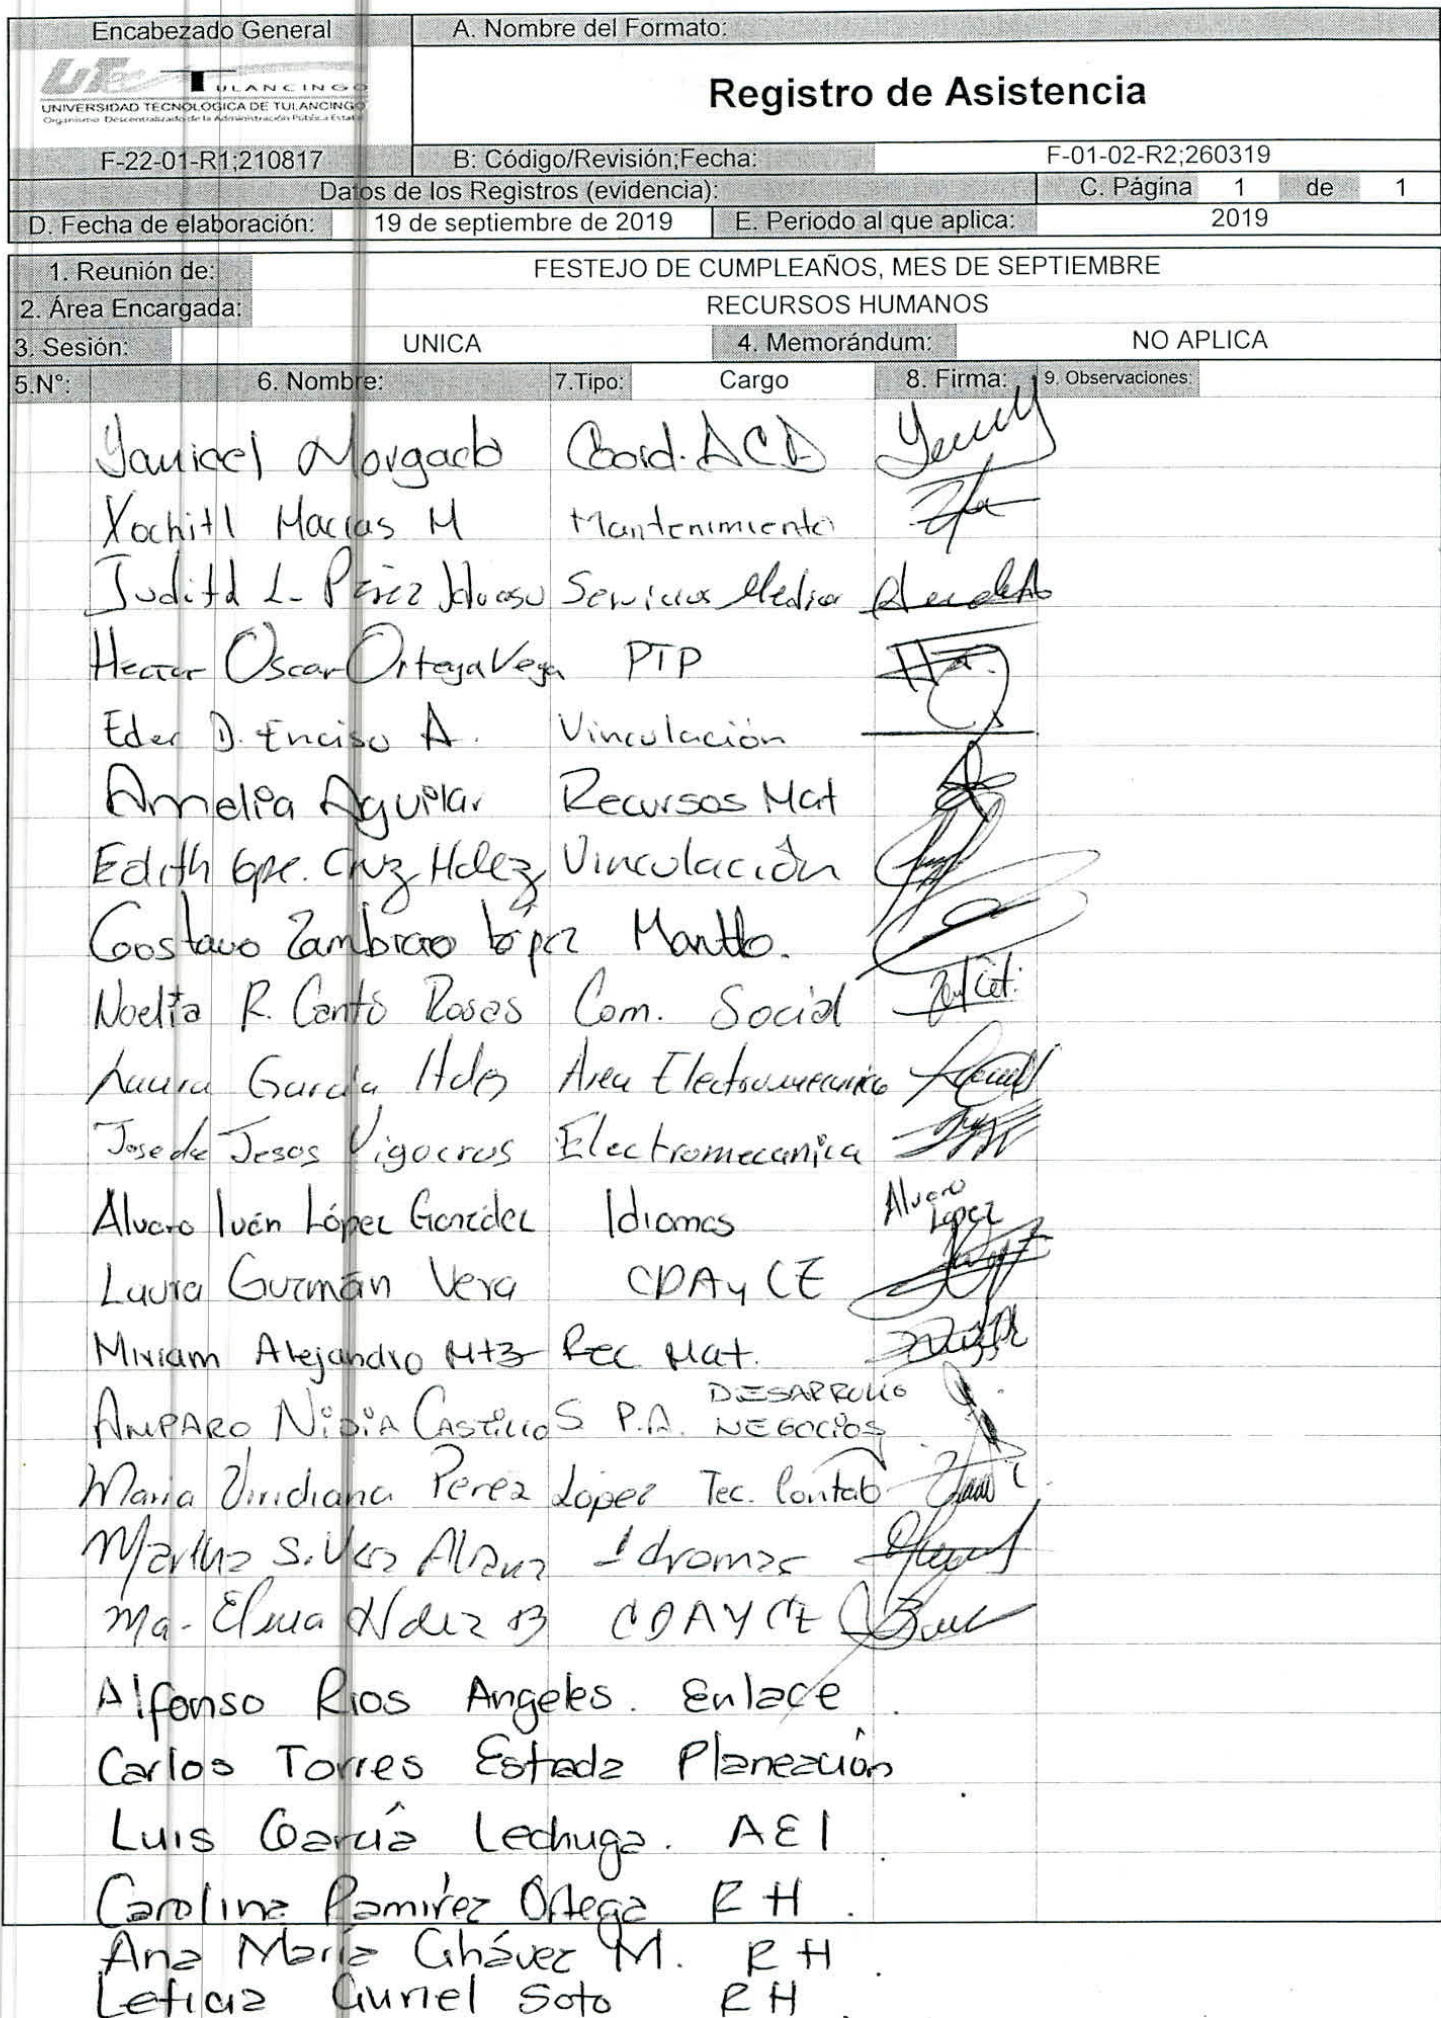 Encabezado General
A. Nombre del Formato:
UTec TULANCINGO
UNIVERSIDAD TECNOLÓGICA DE TULANCINGO
Organismo Descentralizado de la Administración Pública Estatal
Registro de Asistencia
F-22-01-R1;210817
B: Código/Revisión;Fecha:
F-01-02-R2;260319
Datos de los Registros (evidencia):
C. Página 1 de 1
D. Fecha de elaboración: 19 de septiembre de 2019 E. Periodo al que aplica: 2019
1. Reunión de: FESTEJO DE CUMPLEAÑOS, MES DE SEPTIEMBRE
2. Área Encargada: RECURSOS HUMANOS
3. Sesión: UNICA 4. Memorándum: NO APLICA
5.N°: 6. Nombre: 7.Tipo: Cargo 8. Firma: 9. Observaciones:
Morgado Coord. ACD
Xochitl Macias M Mantenimiento
Judith L. Pérez
Hector Oscar Ortega Vega PTP
Eder D. Enciso A. Vinculación
Amelia Aguilar Recursos Mat
Edith Gpe. Cruz Hdez Vinculación
Gostavo Zambrano López Mantto.
Noelia R. Cantó Rosas Com. Social
Laura García Hdez Area Electromecanica
Jose de Jesos Vigocros Electromecanica
Alvaro Iván López González Idiomas Alvaro López
Laura Guzmán Vera CDAyCE
Miriam Alejandro Mtz Rec Mat.
AMPARO NIDIA CASTILLO S P.A. DESARROLLO NEGOCIOS
Maria Viridiana Perez López Tec. Contab
Martha S. Vera Idiomas
Ma. Elena Hdez B CDAYCE
Alfonso Rios Angeles. Enlace
Carlos Torres Estrada Planeación
Luis García Lechuga. AEI
Carolina Ramírez Ortega RH.
Ana María Chávez M. RH.
Leticia Curiel Soto RH.